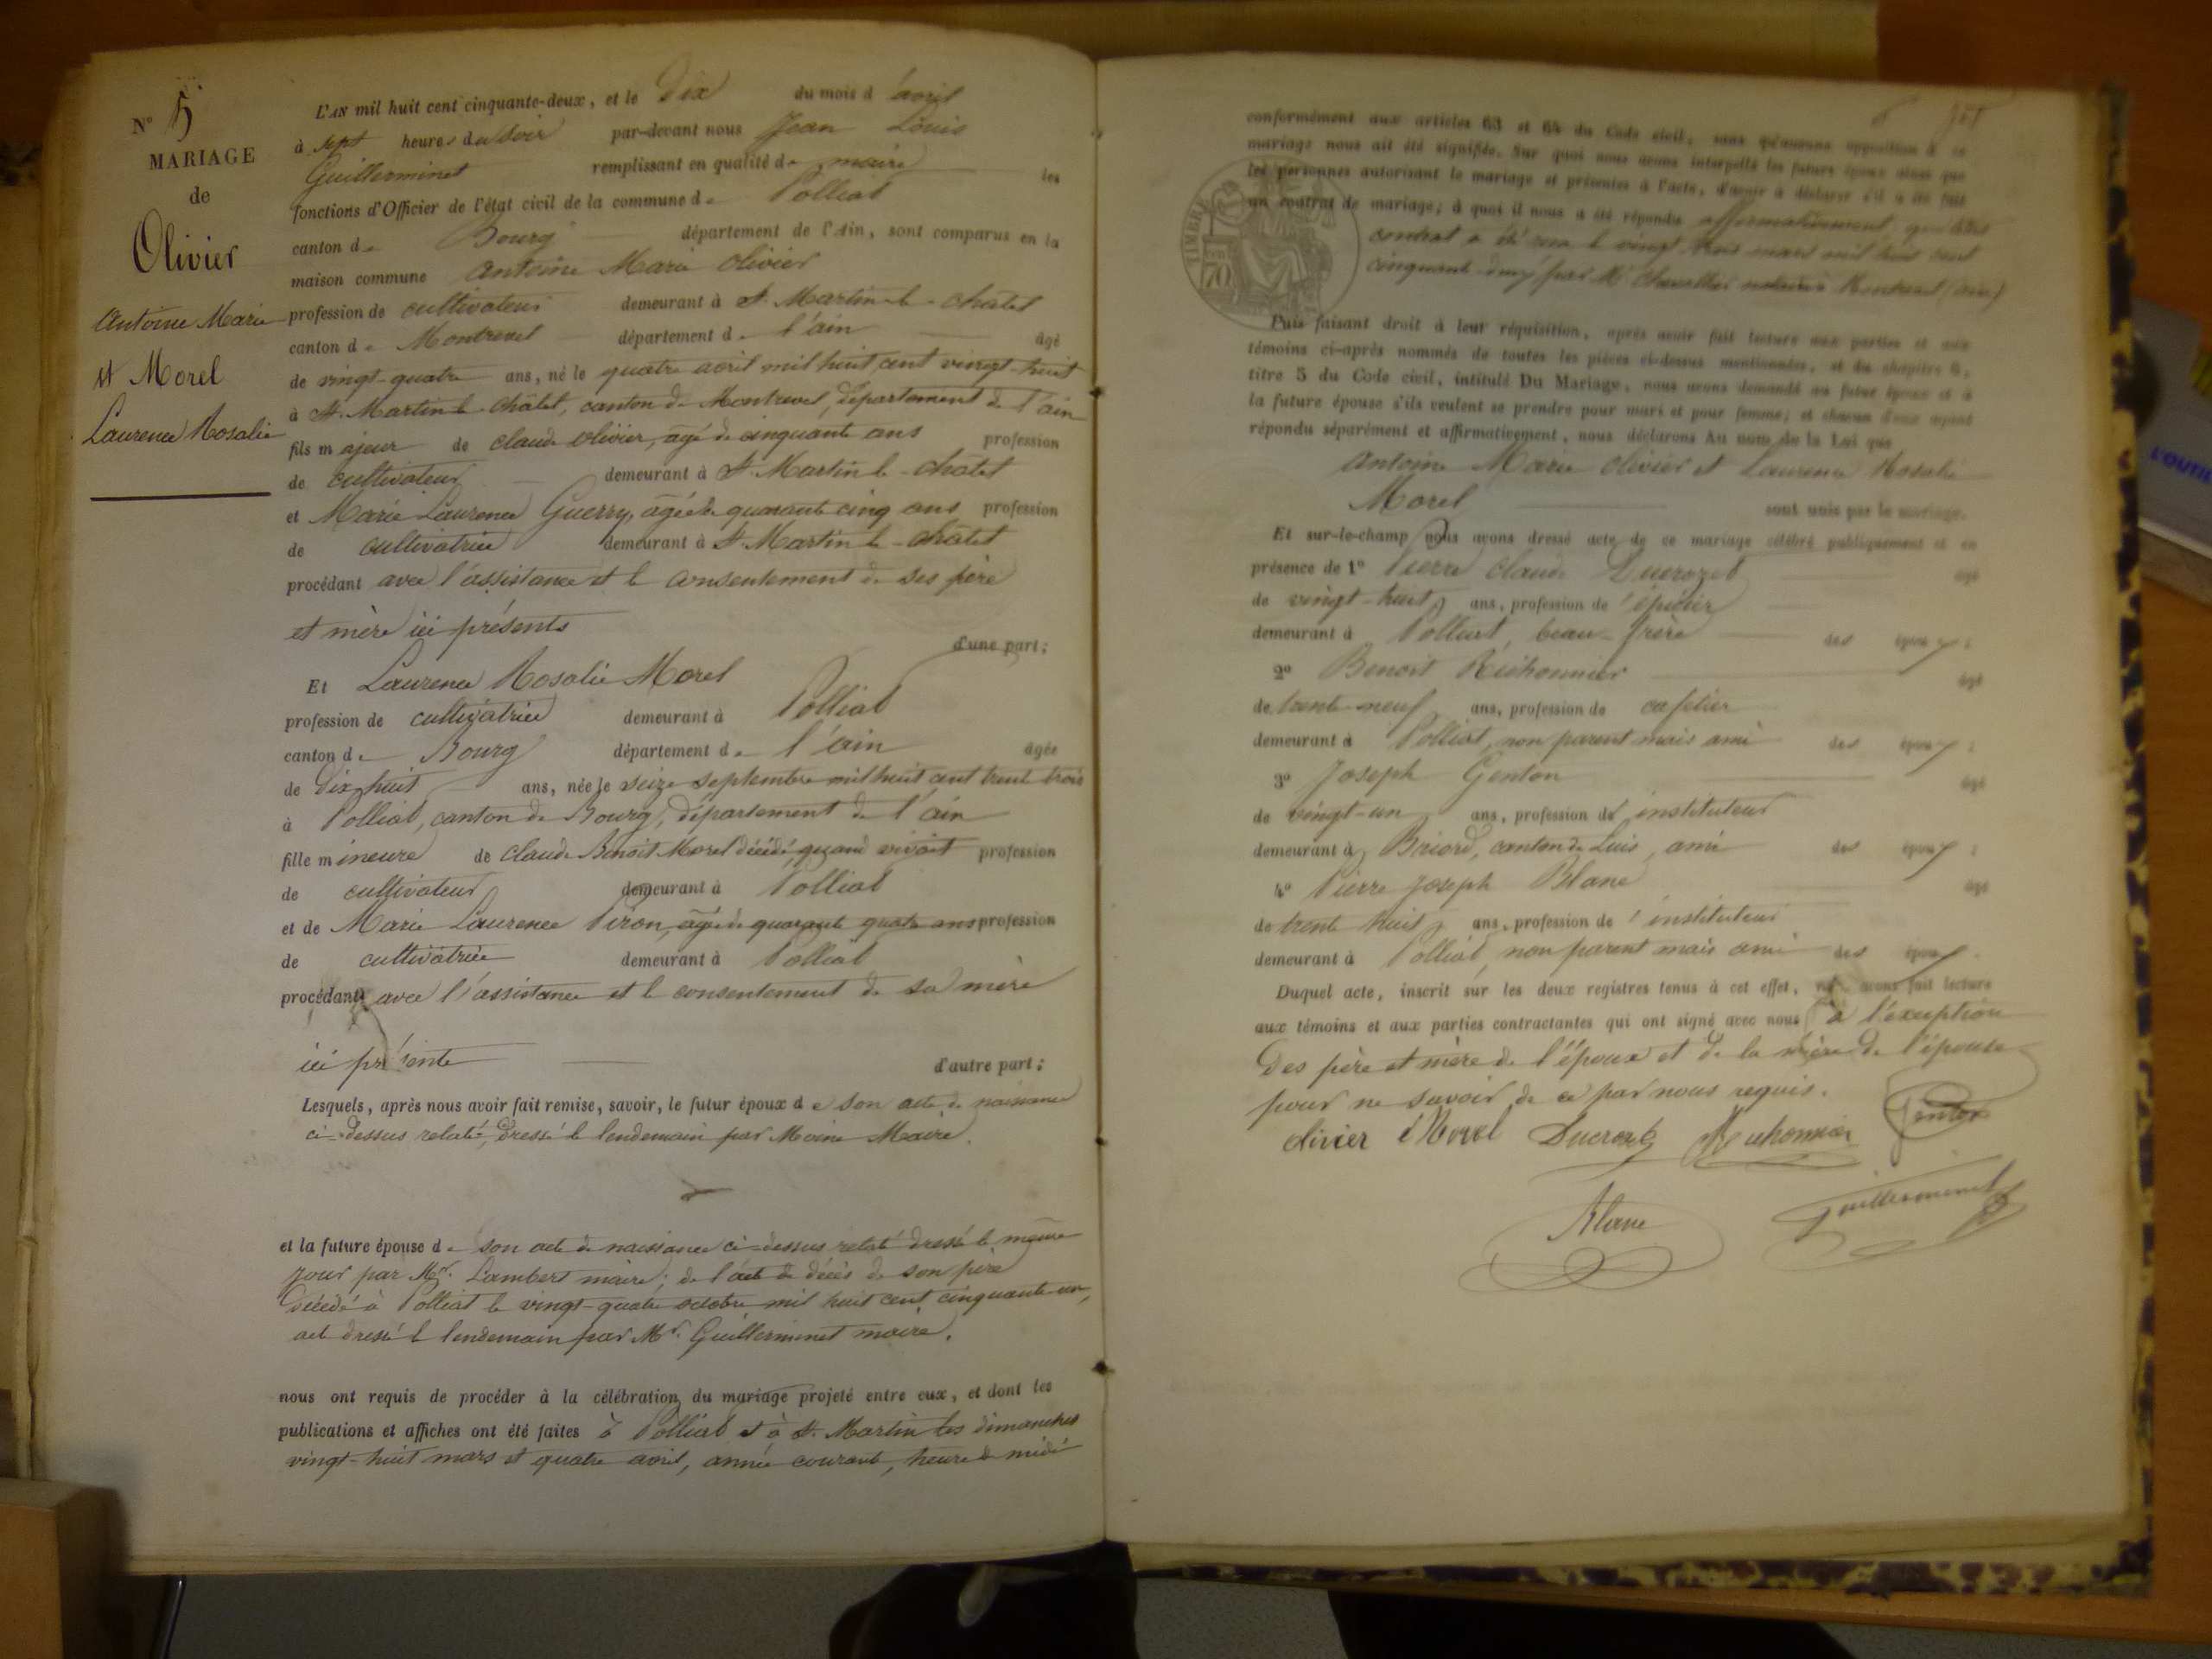 N° 5
MARIAGE
de
Olivier
Antoine Marie
et Morel
Laurence Rosalie
L'AN mil huit cent cinquante-deux, et le Dix du mois d'avril
à sept heures du soir par-devant nous Jean Louis
Guillerminet remplissant en qualité de maire les
fonctions d'Officier de l'état civil de la commune de Polliat
canton de Bourg département de l'Ain, sont comparus en la
maison commune Antoine Marie Olivier
profession de cultivateur demeurant à St. Martin-le-Châtel
canton de Montrevel département de l'ain âgé
de vingt-quatre ans, né le quatre avril mil huit cent vingt-huit
à St. Martin-le-Châtel, canton de Montrevel, département de l'ain
fils majeur de claude olivier, agé de cinquante ans profession
de cultivateur demeurant à St. Martin le-Châtel
et Marie Laurence Guerry, agée de quarante cinq ans profession
de cultivatrice demeurant à St. Martin le-Châtel
procédant avec l'assistance et le consentement de ses père
et mère ici présents
d'une part;
Et Laurence Rosalie Morel
profession de cultivatrice demeurant à Polliat
canton de Bourg département de l'ain âgée
de Dix huit ans, née le seize septembre mil huit cent trente trois
à Polliat, canton de Bourg, département de l'ain
fille mineure de Claude Benoit Morel décédé quand vivait profession
de cultivateur demeurant à Polliat
et de Marie Laurence Piron, agée de quarante quatre ans profession
de cultivatrice demeurant à Polliat
procédant avec l'assistance et le consentement de sa mère
ici présente d'autre part;
Lesquels, après nous avoir fait remise, savoir, le futur époux de son acte de naissance
ci-dessus relaté, Dressé le lendemain par Moine Maire.
et la future épouse de son acte de naissance ci-dessus relaté dressé le même
jour par Mr. Lambert maire; de l'acte de décès de son père
Décédé à Polliat le vingt-quatre octobre mil huit cent cinquante-un,
acte dressé le lendemain par Mr. Guillerminet maire.
nous ont requis de procéder à la célébration du mariage projeté entre eux, et dont les
publications et affiches ont été faites à Polliat et à St. Martin les dimanches
vingt-huit mars et quatre avril, année courante, heure de midi
conformément aux articles 63 et 64 du Code civil, sans qu'aucune opposition à ce
mariage nous ait été signifiée. Sur quoi nous avons interpellé les futurs époux ainsi que
les personnes autorisant le mariage et présentes à l'acte, d'avoir à déclarer s'il a été fait
un contrat de mariage; à quoi il nous a été répondu affirmativement, que
contrat a été le vingt-trois mars mil huit cent
cinquante-deux par Me Chevallier notaire à Montrevel (ain)
TIMBRE
70
Puis faisant droit à leur réquisition, après avoir fait lecture aux parties et aux
témoins ci-après nommés de toutes les pièces ci-dessus mentionnées, et du chapitre 6,
titre 5 du Code civil, intitulé Du Mariage, nous avons demandé au futur époux et à
la future épouse s'ils veulent se prendre pour mari et pour femme; et chacun d'eux ayant
répondu séparément et affirmativement, nous déclarons Au nom de la Loi que
Antoine Marie Olivier et Laurence Rosalie
Morel sont unis par le mariage.
Et sur-le-champ nous avons dressé acte de ce mariage célébré publiquement et en
présence de 1° Pierre Claude Ducrozet âgé
de vingt-huit ans, profession de épicier
demeurant à Polliat, beau-frère des époux;
2° Benoit Réthonnier âgé
de trente-neuf ans, profession de cafetier
demeurant à Polliat, non parent mais ami des époux;
3° Joseph Genton âgé
de vingt-un ans, profession d'instituteur
demeurant à Briord, canton de Luis, ami des époux;
4° Pierre Joseph Blanc âgé
de trente huit ans, profession de instituteur
demeurant à Polliat, non parent mais ami des époux.
Duquel acte, inscrit sur les deux registres tenus à cet effet, nous avons fait lecture
aux témoins et aux parties contractantes qui ont signé avec nous à l'exception
Des père et mère de l'époux et de la mère de l'épouse
pour ne savoir de ce par nous requis.
olivier Morel Ducrozet Réthonnier Genton
Blanc Guillerminet
L'OUTIL